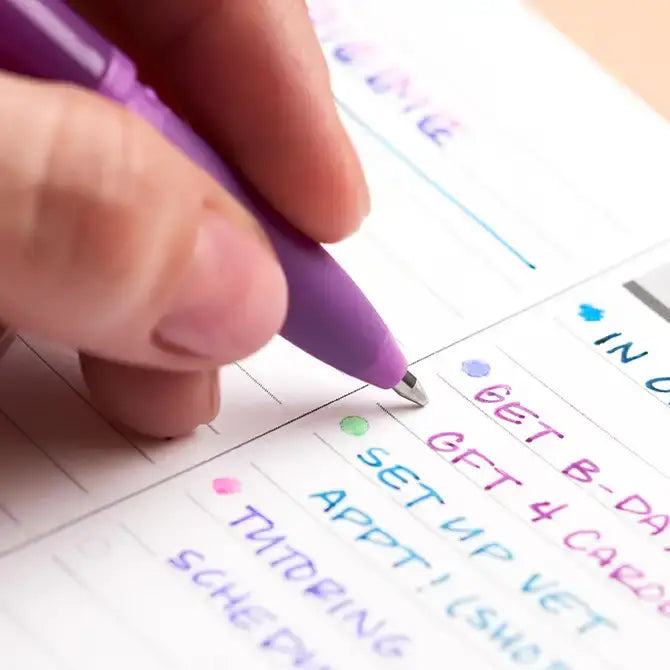 IN
GET B-DA
GFT 4 CARO
SET UP VET
APPT! (SHO
TUTORING
SCHEDU